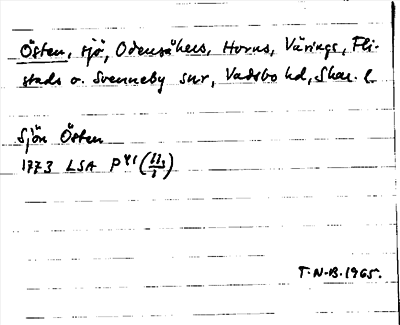 Östen, sjö, Odensåkers, Horns, Värings, Fli-
stads o. Svenneby snr, Vadsbo hd, Skar. l.
Sjön Östen
1773 LSA P41
T.N-B. 1965.